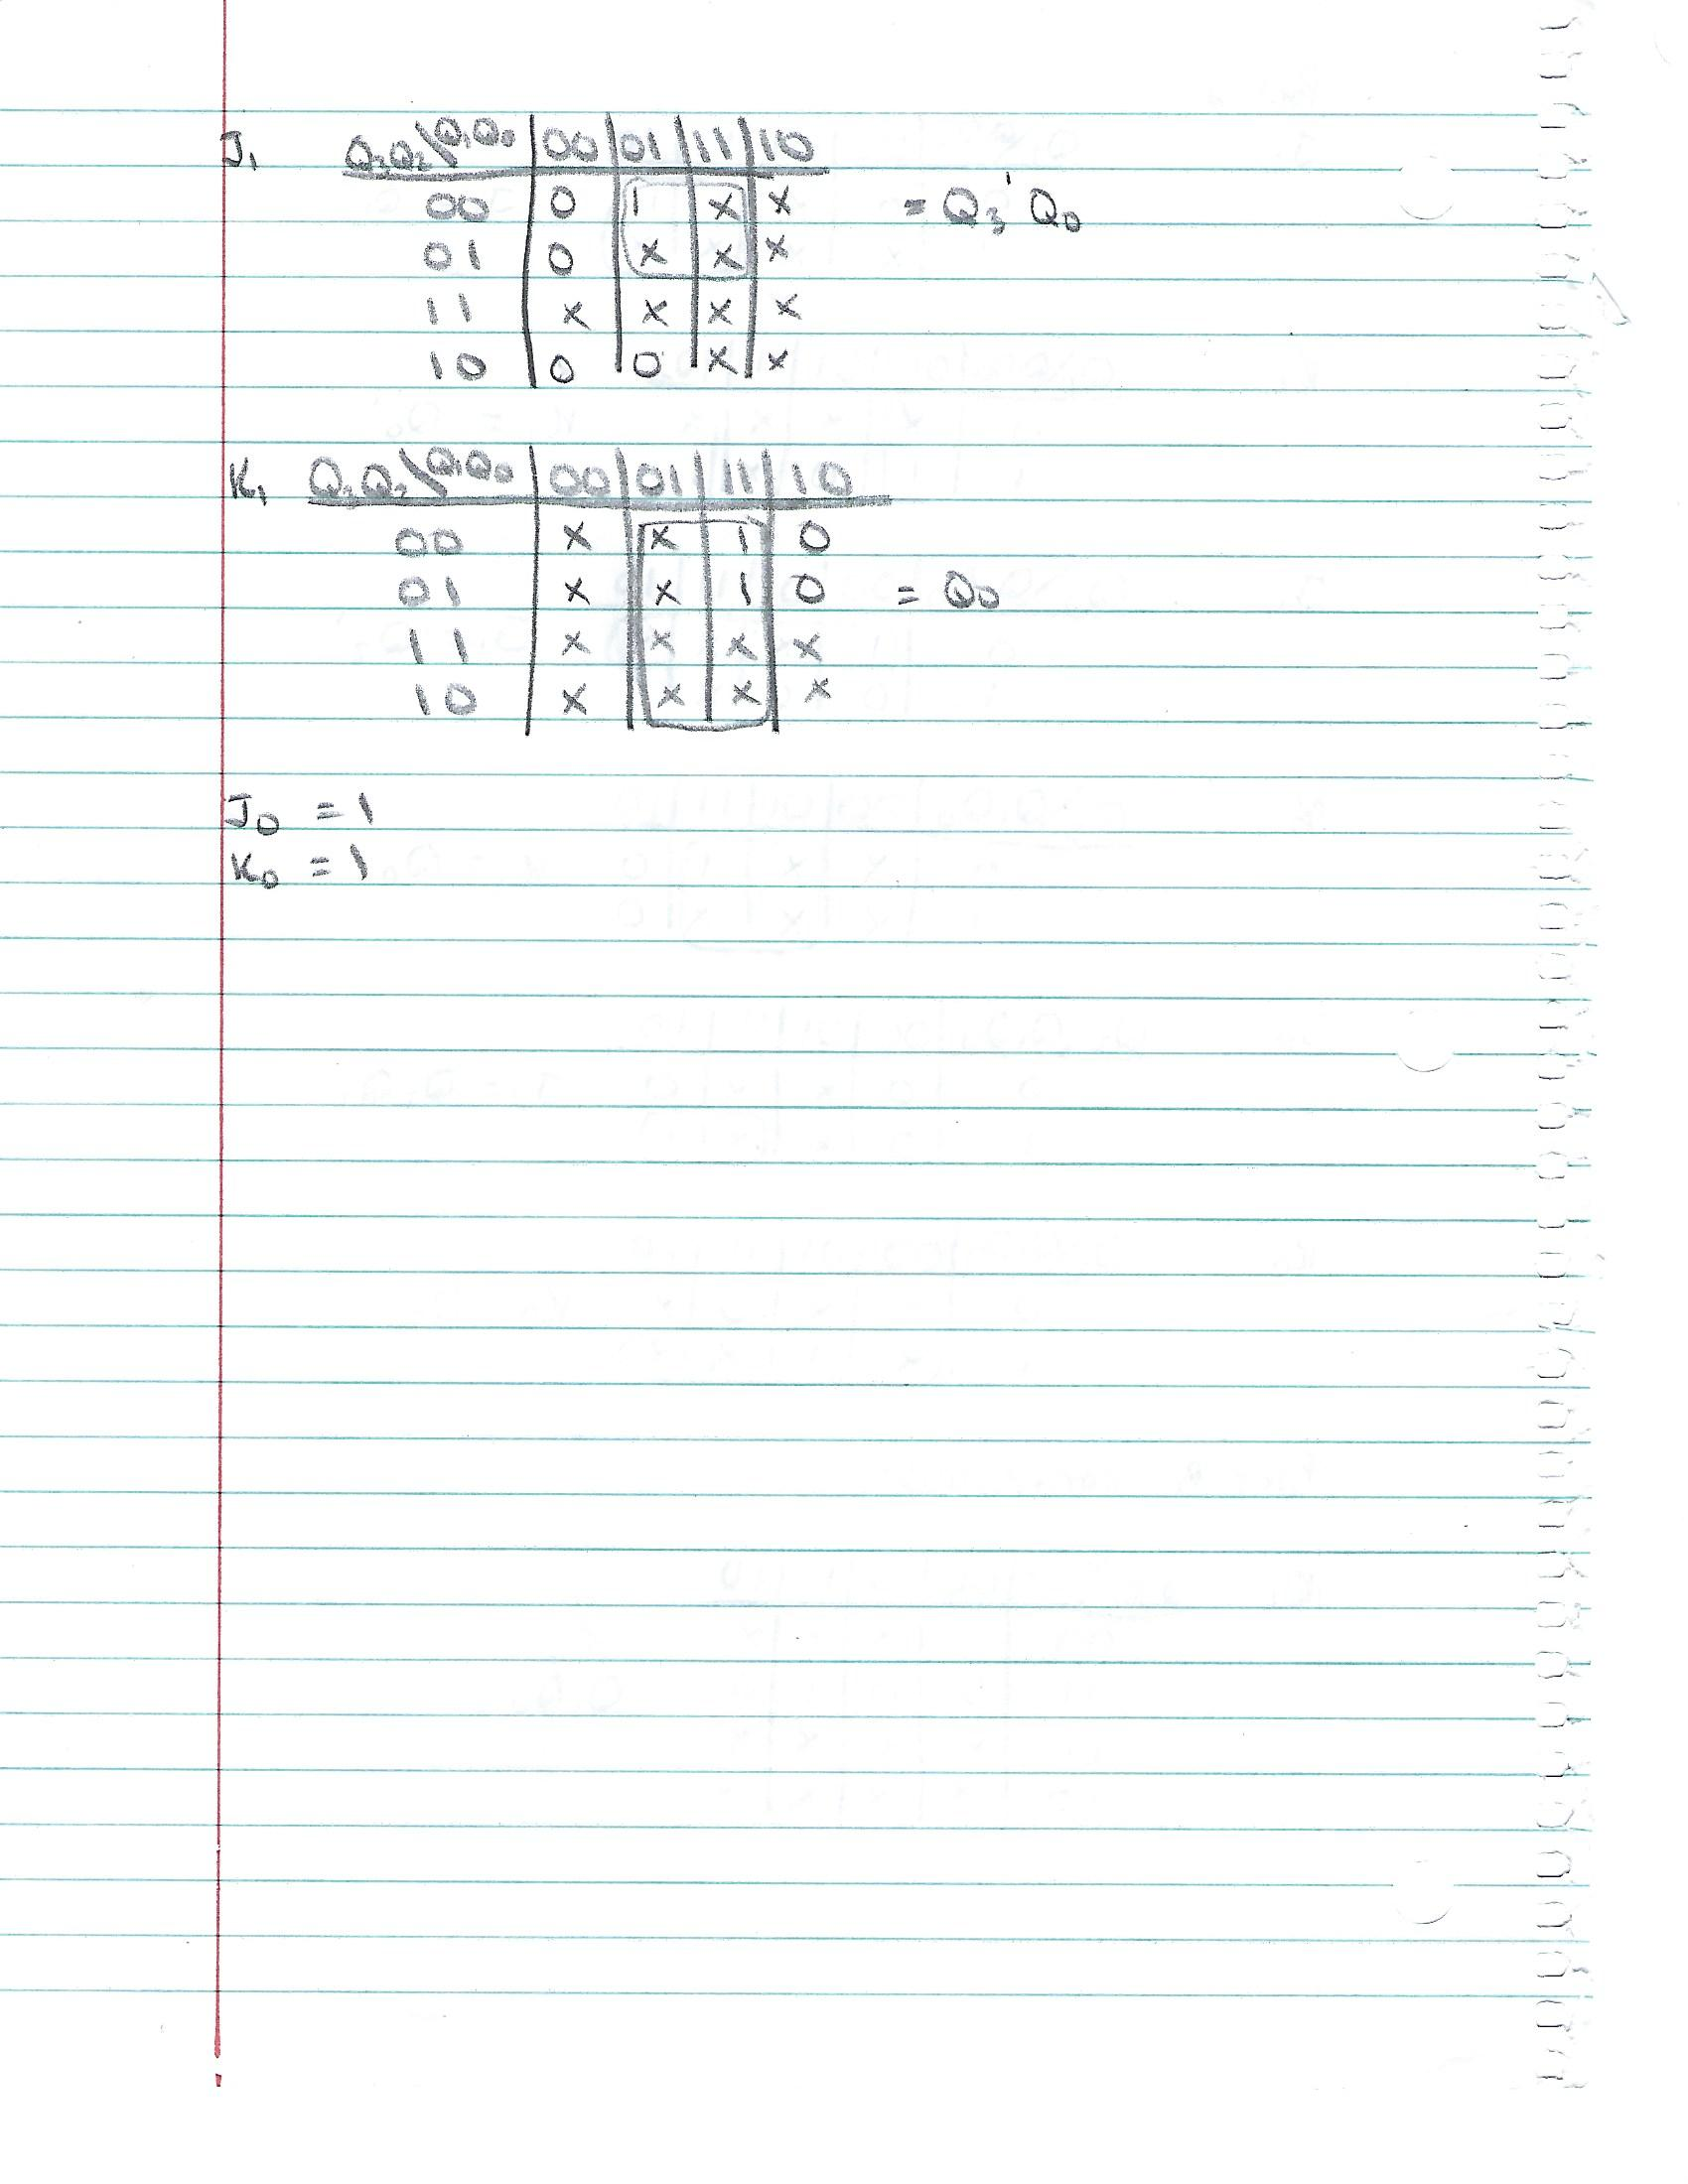 J₁ Q₃Q₂\Q₁Q₀ 00 01 11 10
00 0 1 x x = Q₃' Q₀
01 0 x x x
11 x x x x
10 0 0 x x
K₁ Q₃Q₂\Q₁Q₀ 00 01 11 10
00 x x 1 0
01 x x 1 0 = Q₀
11 x x x x
10 x x x x
J₀ = 1
K₀ = 1